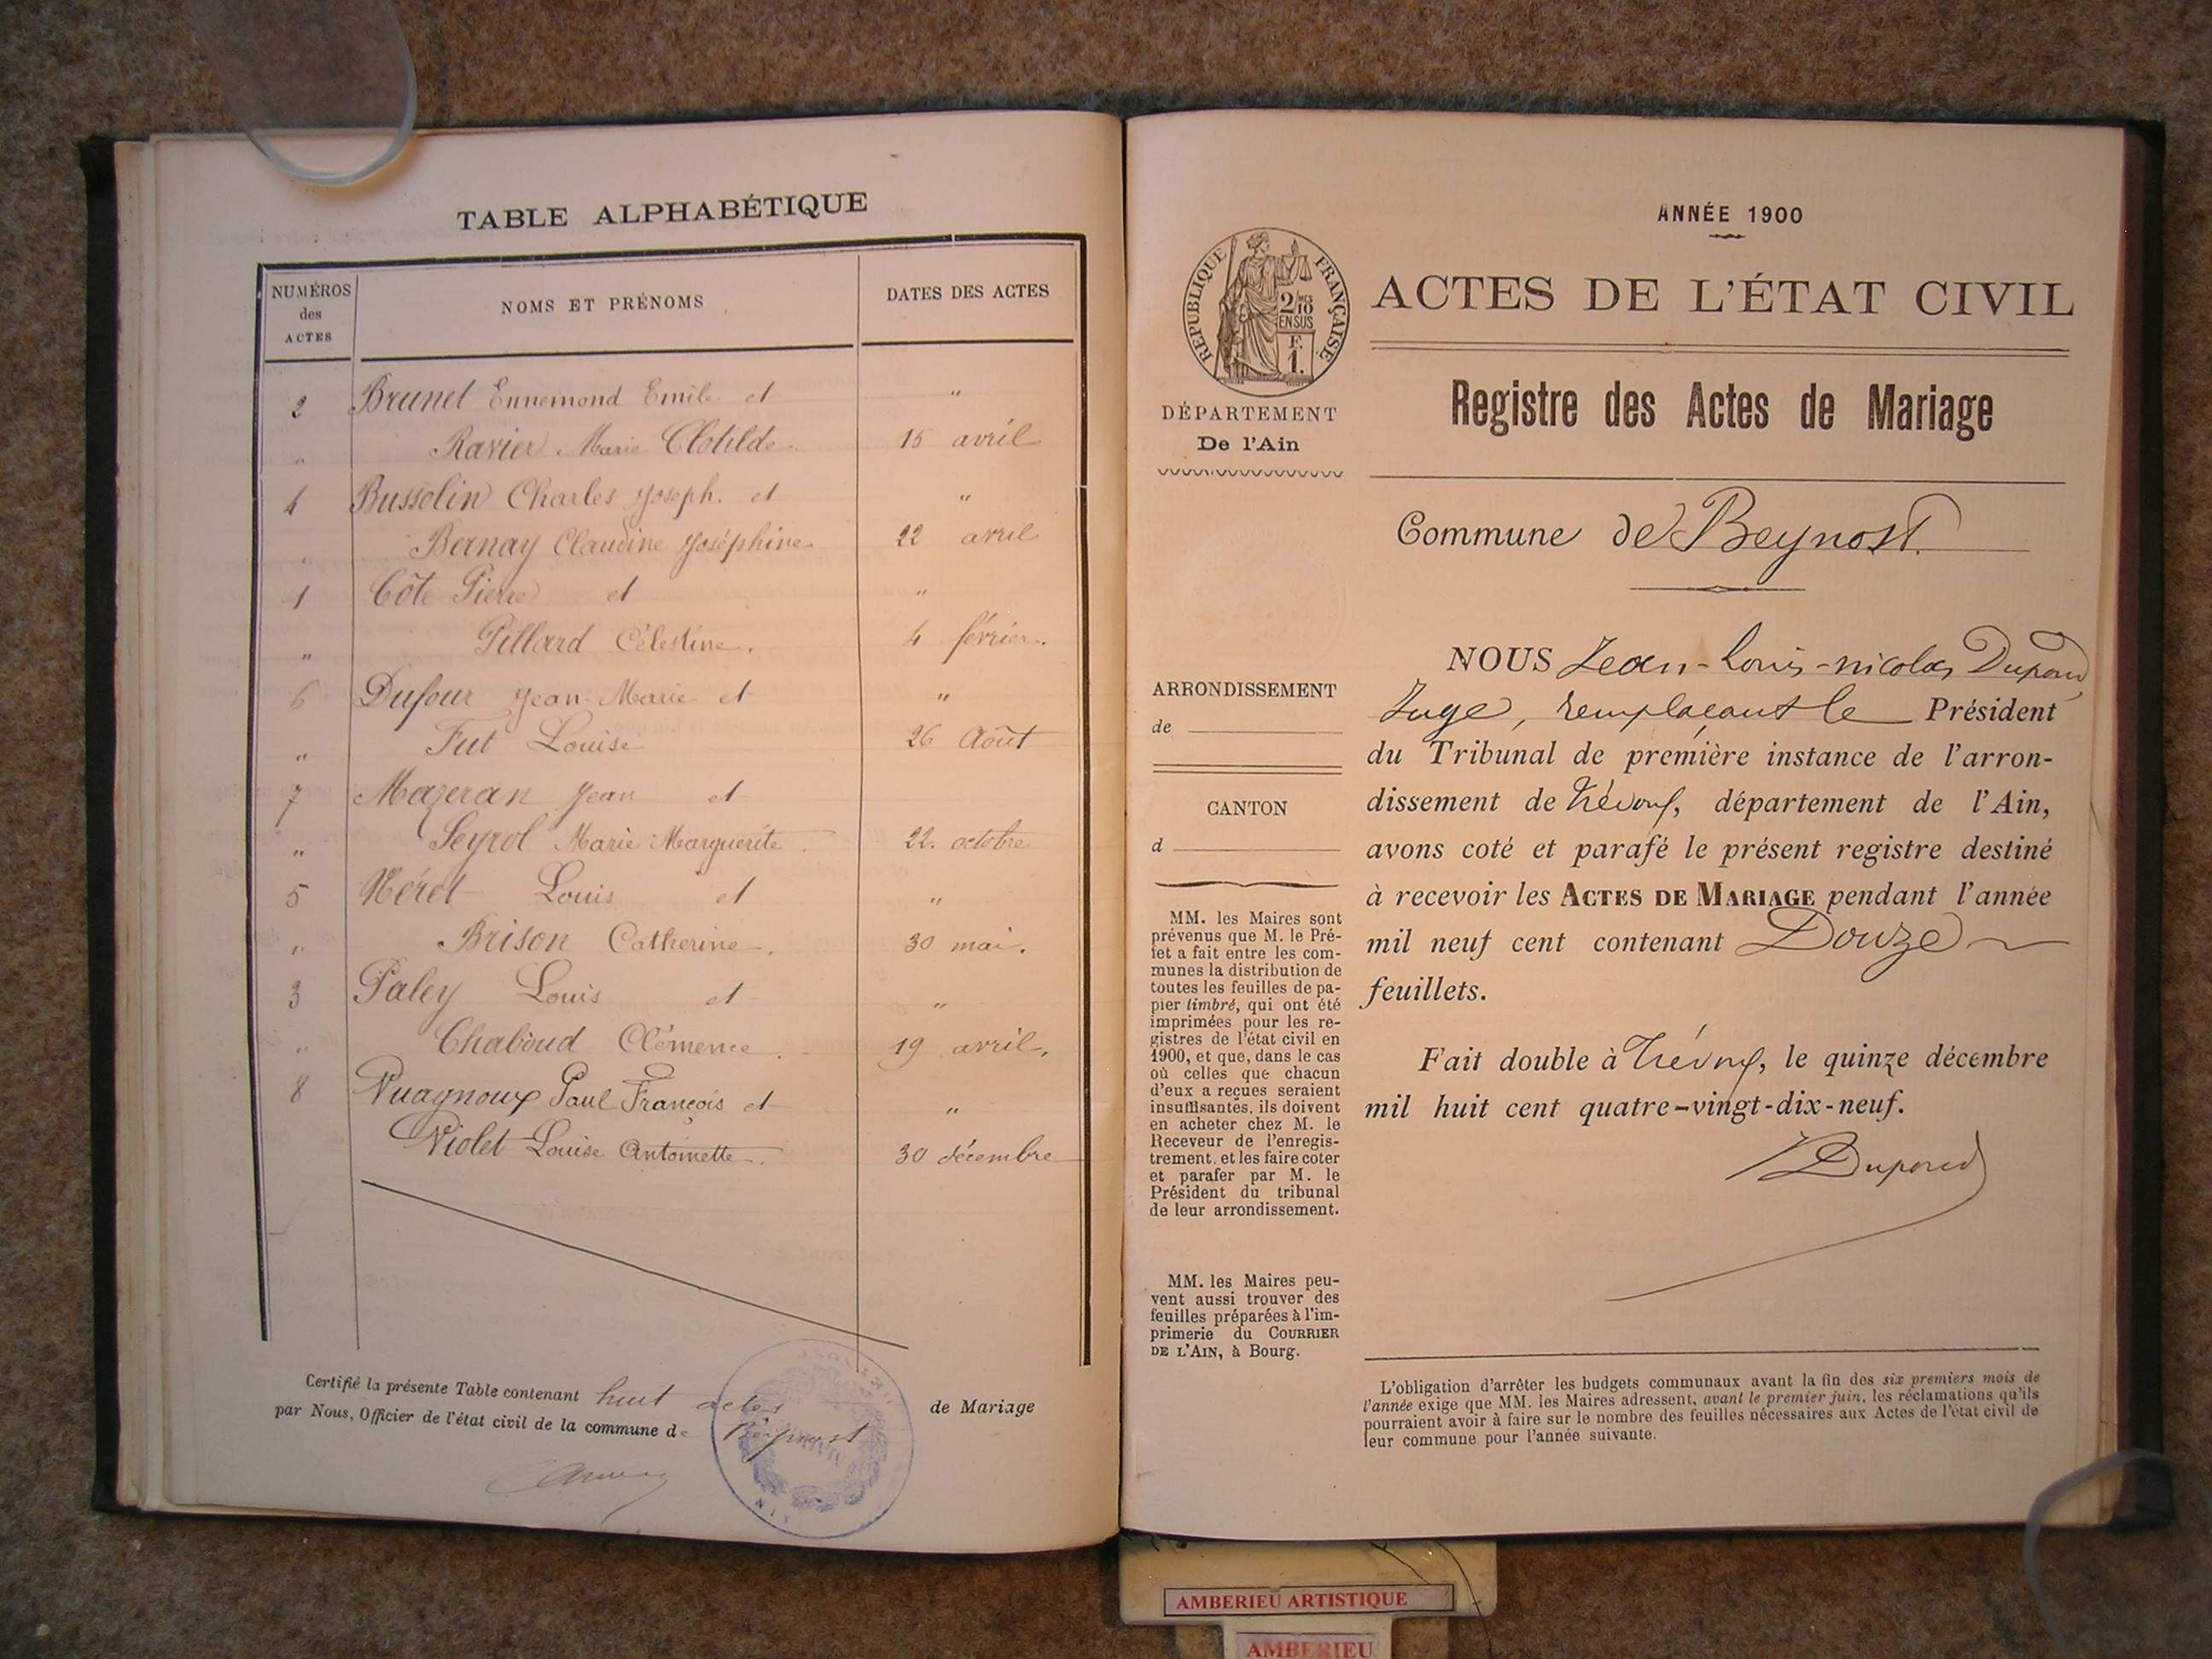 TABLE ALPHABÉTIQUE
NUMÉROS
des
ACTES
NOMS ET PRÉNOMS
DATES DES ACTES
2 Brunet Ennemond Emile et "
" Ravier Marie Clotilde 15 avril
4 Bussolin Charles Joseph. et "
" Bernay Claudine Joséphine 22 avril
1 Côte Pierre et "
" Pillard Célestine. 4 février.
6 Dufour Jean-Marie et "
" Fut Louise 26 Août
7 Mazeran Jean et "
" Seyrol Marie Marguerite. 22. octobre
5 Néret Louis et "
" Brison Catherine. 30 mai.
3 Paley Louis et "
" Chaboud Clémence. 19 avril.
8 Vuagnoux Paul François et "
Violet Louise Antoinette. 30 décembre
Certifié la présente Table contenant huit actes de Mariage
par Nous, Officier de l'état civil de la commune de Beynost
ANNÉE 1900
RÉPUBLIQUE FRANÇAISE
2/10
EN SUS
F.
1.
ACTES DE L'ÉTAT CIVIL
Registre des Actes de Mariage
DÉPARTEMENT
De l'Ain
Commune de Beynost.
ARRONDISSEMENT
de
CANTON
d
MM. les Maires sont
prévenus que M. le Pré-
fet a fait entre les com-
munes la distribution de
toutes les feuilles de pa-
pier timbré, qui ont été
imprimées pour les re-
gistres de l'état civil en
1900, et que, dans le cas
où celles que chacun
d'eux a reçues seraient
insuffisantes, ils doivent
en acheter chez M. le
Receveur de l'enregis-
trement, et les faire coter
et parafer par M. le
Président du tribunal
de leur arrondissement.
MM. les Maires peu-
vent aussi trouver des
feuilles préparées à l'im-
primerie du COURRIER
DE L'AIN, à Bourg.
NOUS Jean-Louis-nicolas Dupond
Juge, remplaçant le Président
du Tribunal de première instance de l'arron-
dissement de Trévoux, département de l'Ain,
avons coté et parafé le présent registre destiné
à recevoir les ACTES DE MARIAGE pendant l'année
mil neuf cent contenant Douze
feuillets.
Fait double à Trévoux, le quinze décembre
mil huit cent quatre-vingt-dix-neuf.
Dupond
L'obligation d'arrêter les budgets communaux avant la fin des six premiers mois de
l'année exige que MM. les Maires adressent, avant le premier juin, les réclamations qu'ils
pourraient avoir à faire sur le nombre des feuilles nécessaires aux Actes de l'état civil de
leur commune pour l'année suivante.
AMBERIEU ARTISTIQUE
AMBERIEU